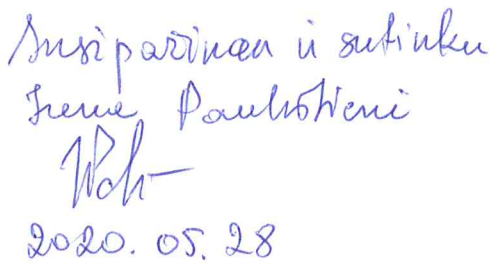 Susipažinau ir sutinku
Irena Paukštienė
2020. 05. 28